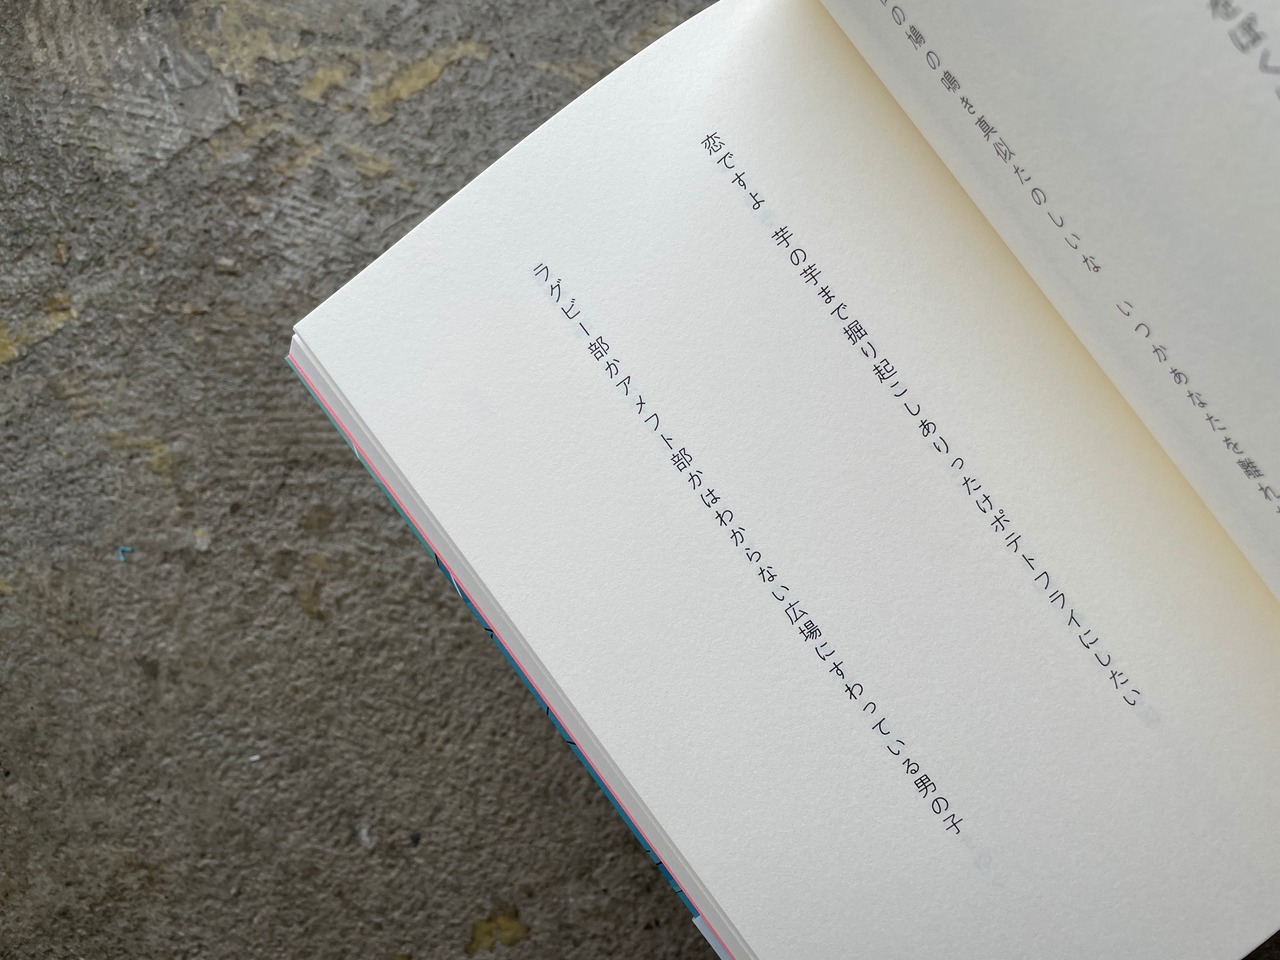 の鳩の鳴き真似たのしいな　いつかあなたを離れ
恋ですよ　芋の芋まで掘り起こしありったけポテトフライにしたい
ラグビー部かアメフト部かはわからない広場にすわっている男の子